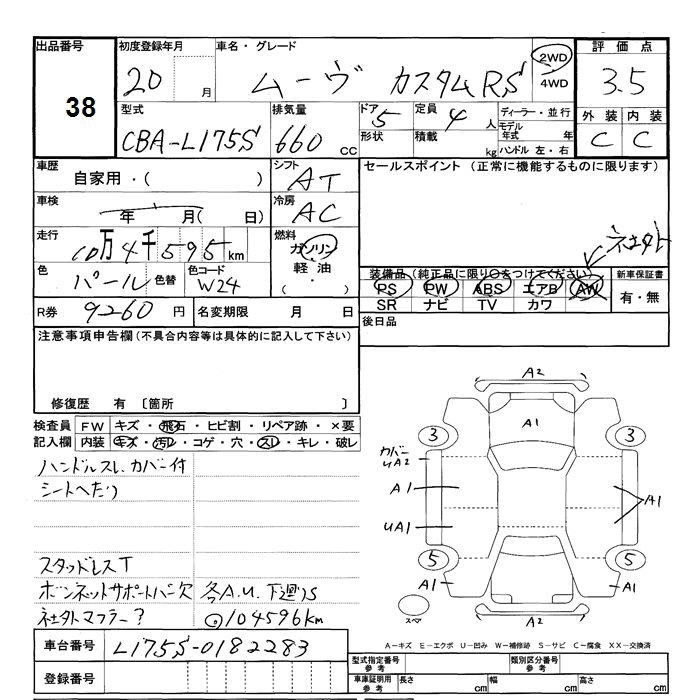 出品番号 初度登録年月 車名・グレード 評価点
38 20 月 ムーヴ カスタムRS 2WD 4WD 3.5
外装 内装
C C
型式 排気量 ドア 定員 ディーラー・並行
CBA-L175S 660 cc 5 4 人 モデル年式 年
形状 積載 kg ハンドル 左・右
車歴 シフト セールスポイント (正常に機能するものに限ります)
自家用・( ) AT
車検 冷房
年 月( 日) AC
走行 燃料
10万4千595km ガソリン 社外
色 色替 色コード 軽油
パール W24 ( ・ )
装備品 (純正品に限り○をつけてください) 新車保証書
PS PW ABS エアB AW 有・無
SR ナビ TV カワ
R券 9260円 名変期限 月 日 後日品
注意事項申告欄(不具合内容等は具体的に記入して下さい)
修復歴 有 〔箇所 〕
検査員 FW キズ・飛石・ヒビ割・リペア跡・×要
記入欄 内装 キズ・汚レ・コゲ・穴・スレ・キレ・破レ
ハンドルスレ、カバー付
シートへたり
スタッドレスT
ボンネットサポートバー欠 各A.U. 下廻りS
社外マフラー? ◎104596km
A2
A1
3 3
カバー
UA2
A1 A1
UA1
5 5
A1 A1
A2
スペア
A-キズ E-エクボ U-凹み W-補修跡 S-サビ C-腐食 XX-交換済
車台番号 L175S-0182283
登録番号
型式指定番号 参考 類別区分番号 参考
車庫証明用 参考 長さ cm 幅 cm 高さ cm